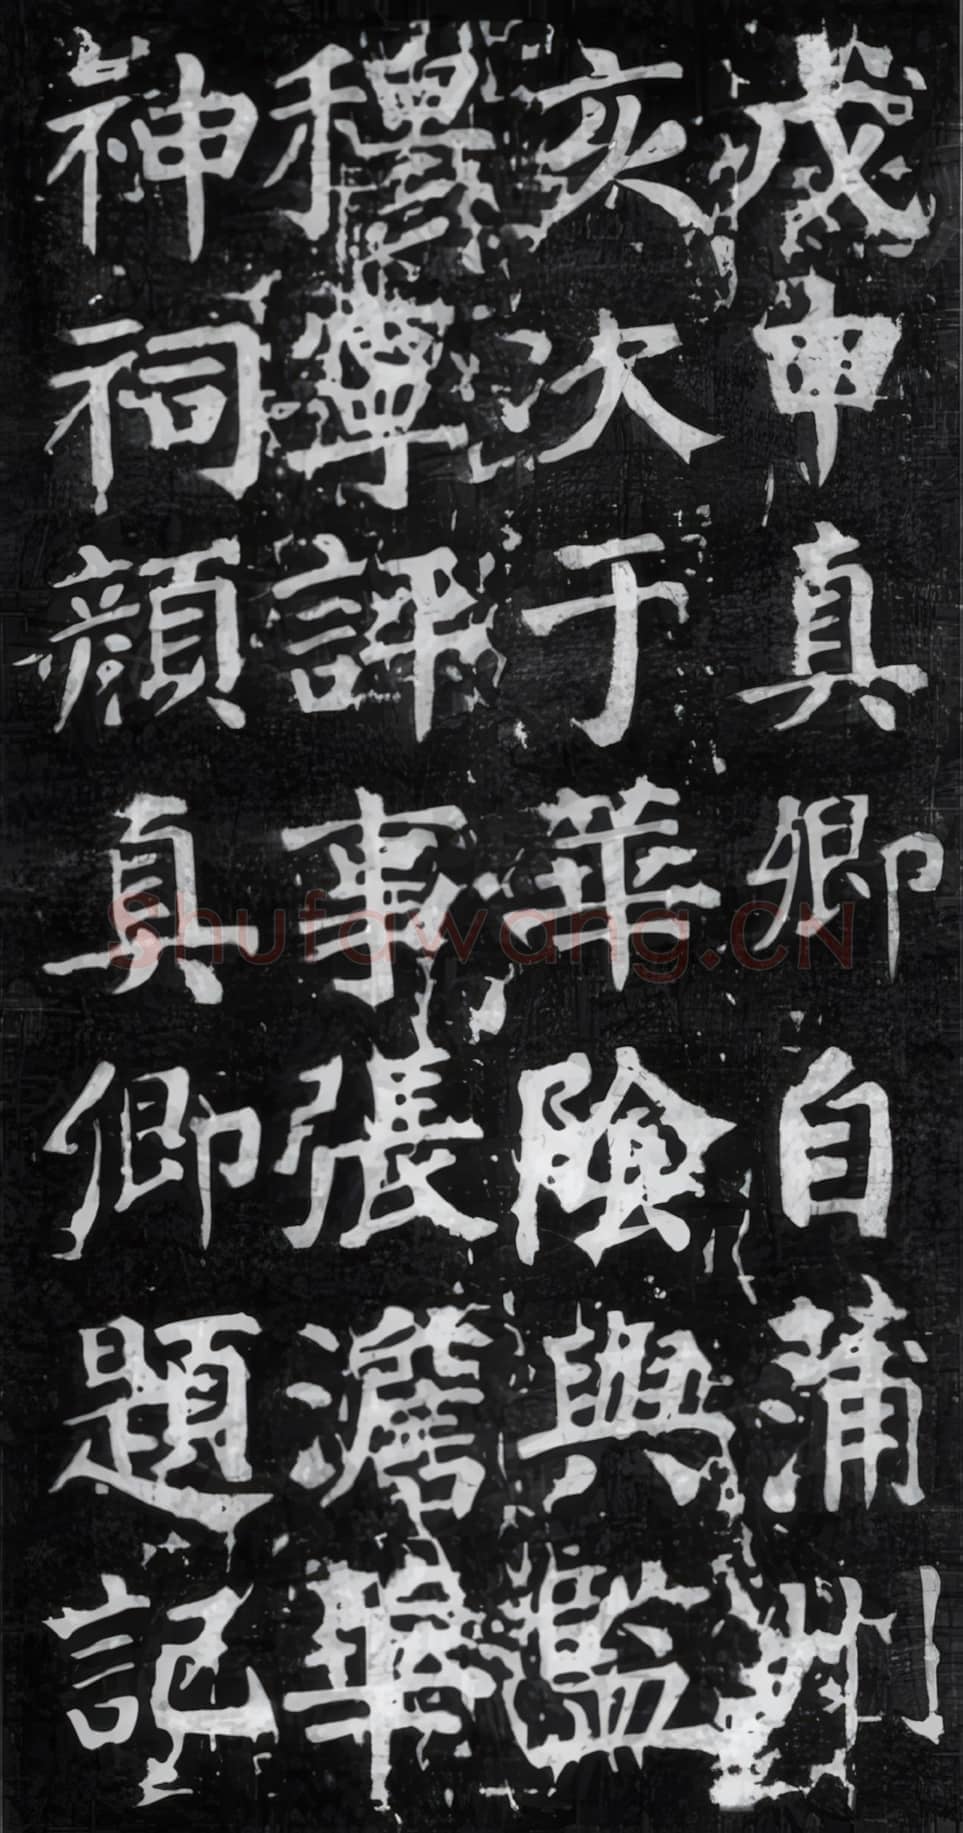 戊申真卿自蒲州
亥次于華陰與監
穆寧評事張澹華
神祠顏真卿題記
Shufawang.CN